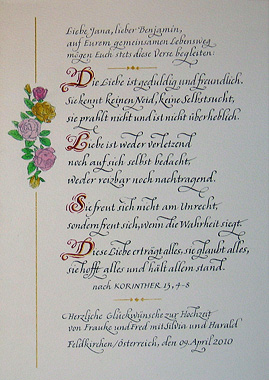 Liebe Jana, lieber Benjamin,
auf Eurem gemeinsamen Lebensweg
mögen Euch stets diese Verse begleiten
Die Liebe ist geduldig und freundlich.
Sie kennt keinen Neid, keine Selbstsucht,
sie prahlt nicht und ist nicht überheblich.
Liebe ist weder verletzend
noch auf sich selbst bedacht,
weder reizbar noch nachtragend.
Sie freut sich nicht am Unrecht,
sondern freut sich, wenn die Wahrheit siegt.
Diese Liebe erträgt alles, sie glaubt alles,
sie hofft alles und hält allem stand.
nach KORINTHER 13, 4-8
Herzliche Glückwünsche zur Hochzeit
von Frauke und Fred mit Silvia und Harald
Feldkirchen/Österreich, den 09. April 2010